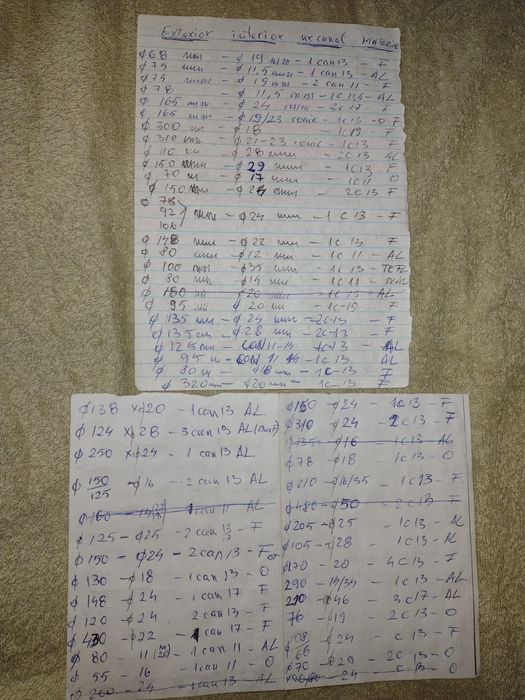 Exterior interior nr canal MATERIAL
ϕ68 mm - ϕ 19 mm - 1 can 13 - F
ϕ75 mm - ϕ 11,5 mm - 1 can 13 - AL
ϕ75 mm - ϕ 19 mm - 2 can 11 - F
ϕ78 ϕ 11,5 mm - 1c 11,5 - AL
ϕ 165 mm - ϕ 24 mm - 2c 17 F
ϕ 165 mm - ϕ 19/23 conic - 1c13 - O F
ϕ 300 m - ϕ 18 - 1c19 F
ϕ 310 mm - ϕ 21-23 conic - 1c13 F
ϕ 110 m - ϕ 28 mm - 2c13
ϕ 150 mm - ϕ 29 mm - 1c13 F
ϕ 70 m - ϕ 17 mm - 1c11 O
ϕ 150 mm - ϕ 24 mm 2c13 F
ϕ 78
92 } mm - ϕ 24 mm - 1 c 13 - F
106
ϕ 148 mm - ϕ 22 mm - 1c13 F
ϕ 80 mm - ϕ 12 mm - 1c 11 - AL
ϕ 100 mm - ϕ 35 mm - 1c 13 -
ϕ 80 mm - ϕ 14 mm - 1c 11 -
ϕ 180 m - ϕ 20 mm - 1c 15 - AL
ϕ 95 m - ϕ 20 m - 1c-15 F
ϕ 135 mm - ϕ 24 mm - 2c-13 - F
ϕ 135 m - ϕ 28 mm - 2c-13 - F
ϕ 125 m - con 11-14 1c-13 - AL
ϕ 95 m - con 11 14 - 1c13 AL
ϕ 80 m - ϕ 18 m - 1c-13 F
ϕ 320 m - ϕ20 m - 1c 13 F
ϕ 138 x ϕ20 - 1 can 13 AL
ϕ 124 x ϕ 28 - 3 can 13 AL
ϕ 250 x ϕ24 - 1 can 13 AL
ϕ 150/125 - ϕ 16 - 2 can 13 AL
ϕ 160 - 1 can 11 - AL
ϕ 125 - ϕ25 - 2 can - F
ϕ 150 - ϕ24 - 2 can 13 - F
ϕ 130 - ϕ 18 - 1 can 13 - O
ϕ 148 - ϕ 24 - 1 can 17 F
ϕ 120 - ϕ 24 - 2 can 13 - F
ϕ 430 - ϕ 22 - 1 can 17 - F
ϕ 80 - 11 - 1 can 11 - AL
ϕ 55 - 16 - 1 can 11 - O
ϕ 260 - 24 - 1 can 13 AL
ϕ 24 - 1c 13 - F
ϕ310 ϕ 24 - 2 c 13 - F
ϕ135 - ϕ 16 - 1c 13 - AL
ϕ 78 - ϕ 18 - 1c 13 - O
ϕ 210 - ϕ 16/35 - 1c13 - F
ϕ 480 - ϕ 50 - 2c 13 - F
ϕ205 - ϕ25 - 1c 13 -
ϕ105 - ϕ 28 - 1c 13 -
ϕ170 - 20 - 4c 13 - F
290 - 14/34 - 1c 13 - AL
ϕ46 - 3c17 - AL
76 - ϕ19 - 2c 13 - O
ϕ 108 - ϕ 24 - c 13 - F
ϕ 66
ϕ 70 - ϕ 29 - 2c 13 - O
24 - c 13 - O